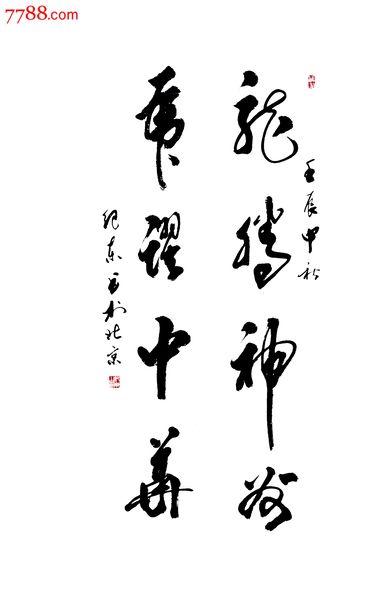 7788.com
壬辰秋
龍騰神州
虎躍中華
纪东书於北京